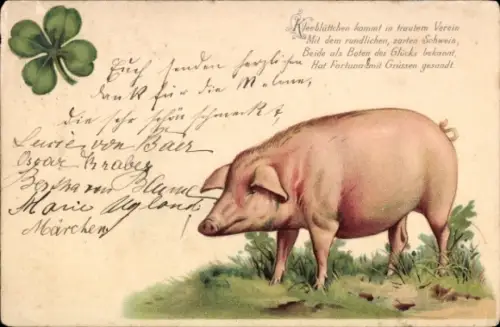 Kleeblättchen kommt in trautem Verein
Mit dem rundlichen, zarten Schwein,
Beide als Boten des Glücks bekannt,
Hat Fortuna mit Grüssen gesandt.
Euch senden herzlichen
dank für die Melone,
die sehr schön schmeckt,
Lucie von Baer
Oscar Graber
Bertha von Blume
Marie
Märchen